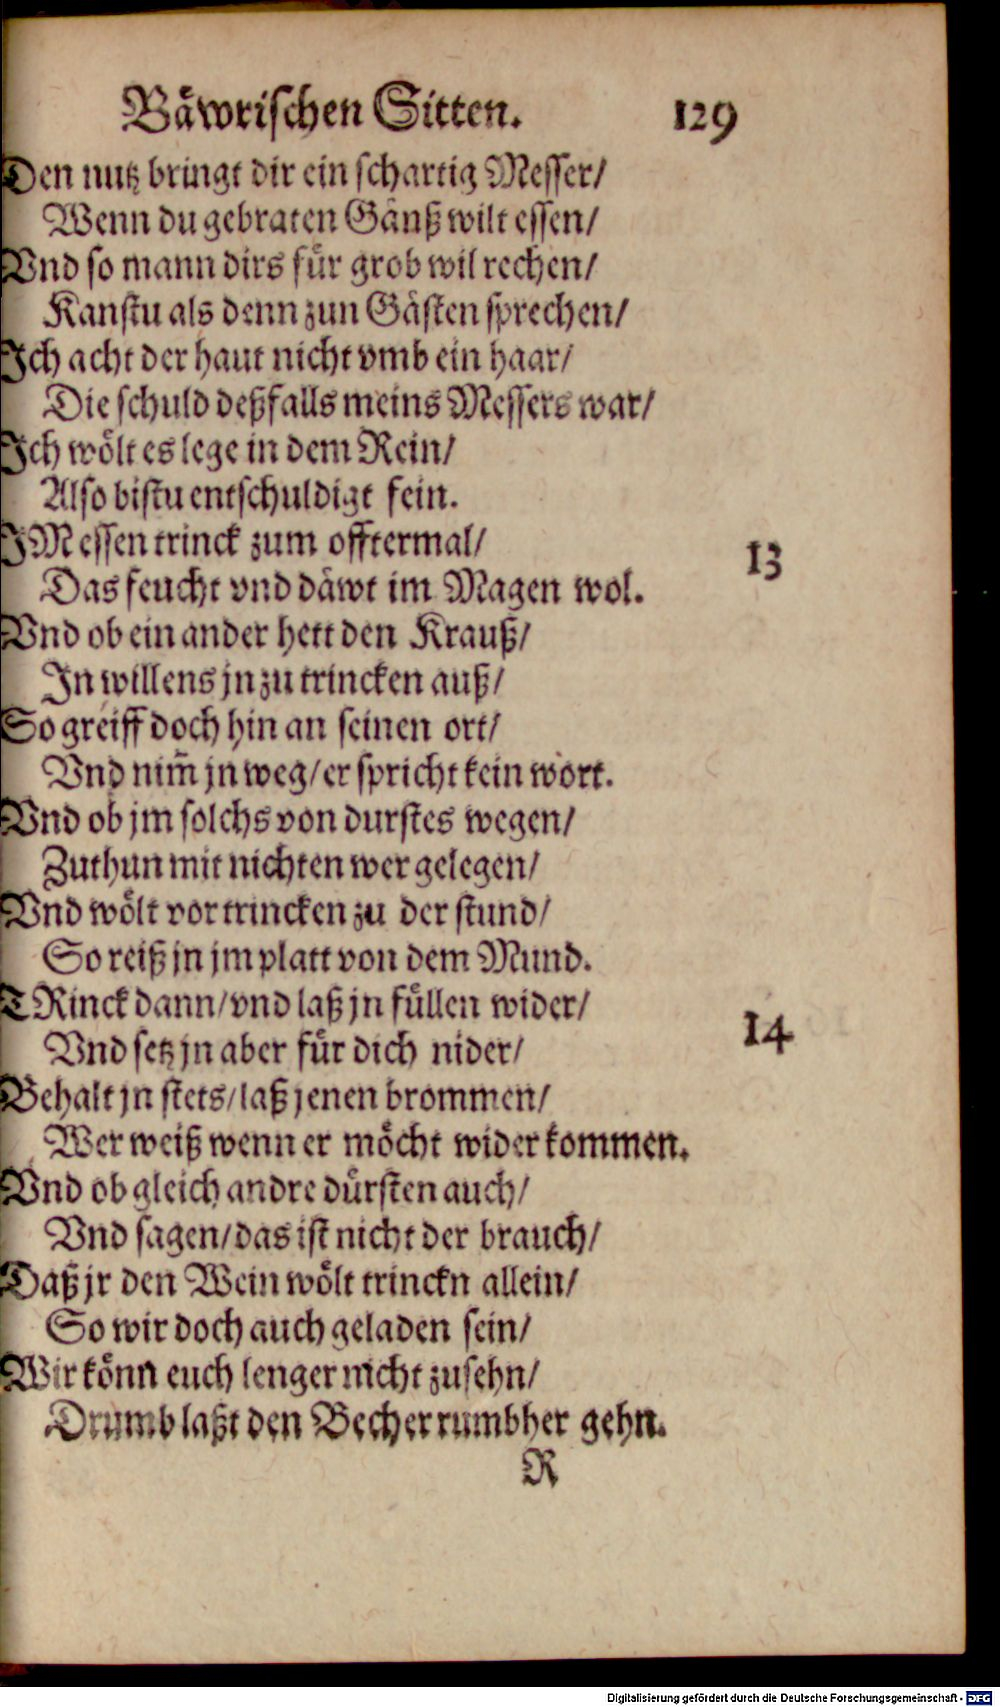 Bäwrischen Sitten. 129
Den nutz bringt dir ein schartig Messer/
Wenn du gebraten Gänß wilt essen/
Vnd so mann dirs für grob wil rechen/
Kanstu als denn zun Gästen sprechen/
Ich acht der haut nicht vmb ein haar/
Die schuld deßfalls meins Messers war/
Ich wölt es lege in dem Rein/
Also bistu entschuldigt fein.
IM essen trinck zum offtermal/
13
Das feucht vnd däwt im Magen wol.
Vnd ob ein ander hett den Krauß/
In willens jn zu trincken auß/
So greiff doch hin an seinen ort/
Vnd nim̃ jn weg/er spricht kein wort.
Vnd ob jm solchs von durstes wegen/
Zuthun mit nichten wer gelegen/
Vnd wölt vor trincken zu der stund/
So reiß jn jm platt von dem Mund.
TRinck dann/vnd laß jn füllen wider/
14
Vnd setz jn aber für dich nider/
Behalt jn stets/laß jenen brommen/
Wer weiß wenn er möcht wider kommen.
Vnd ob gleich andre dürsten auch/
Vnd sagen/das ist nicht der brauch/
Daß jr den Wein wölt trinckn allein/
So wir doch auch geladen sein/
Wir könn euch lenger nicht zusehn/
Drumb laßt den Becher rumbher gehn.
R
Digitalisierung gefördert durch die Deutsche Forschungsgemeinschaft - DFG